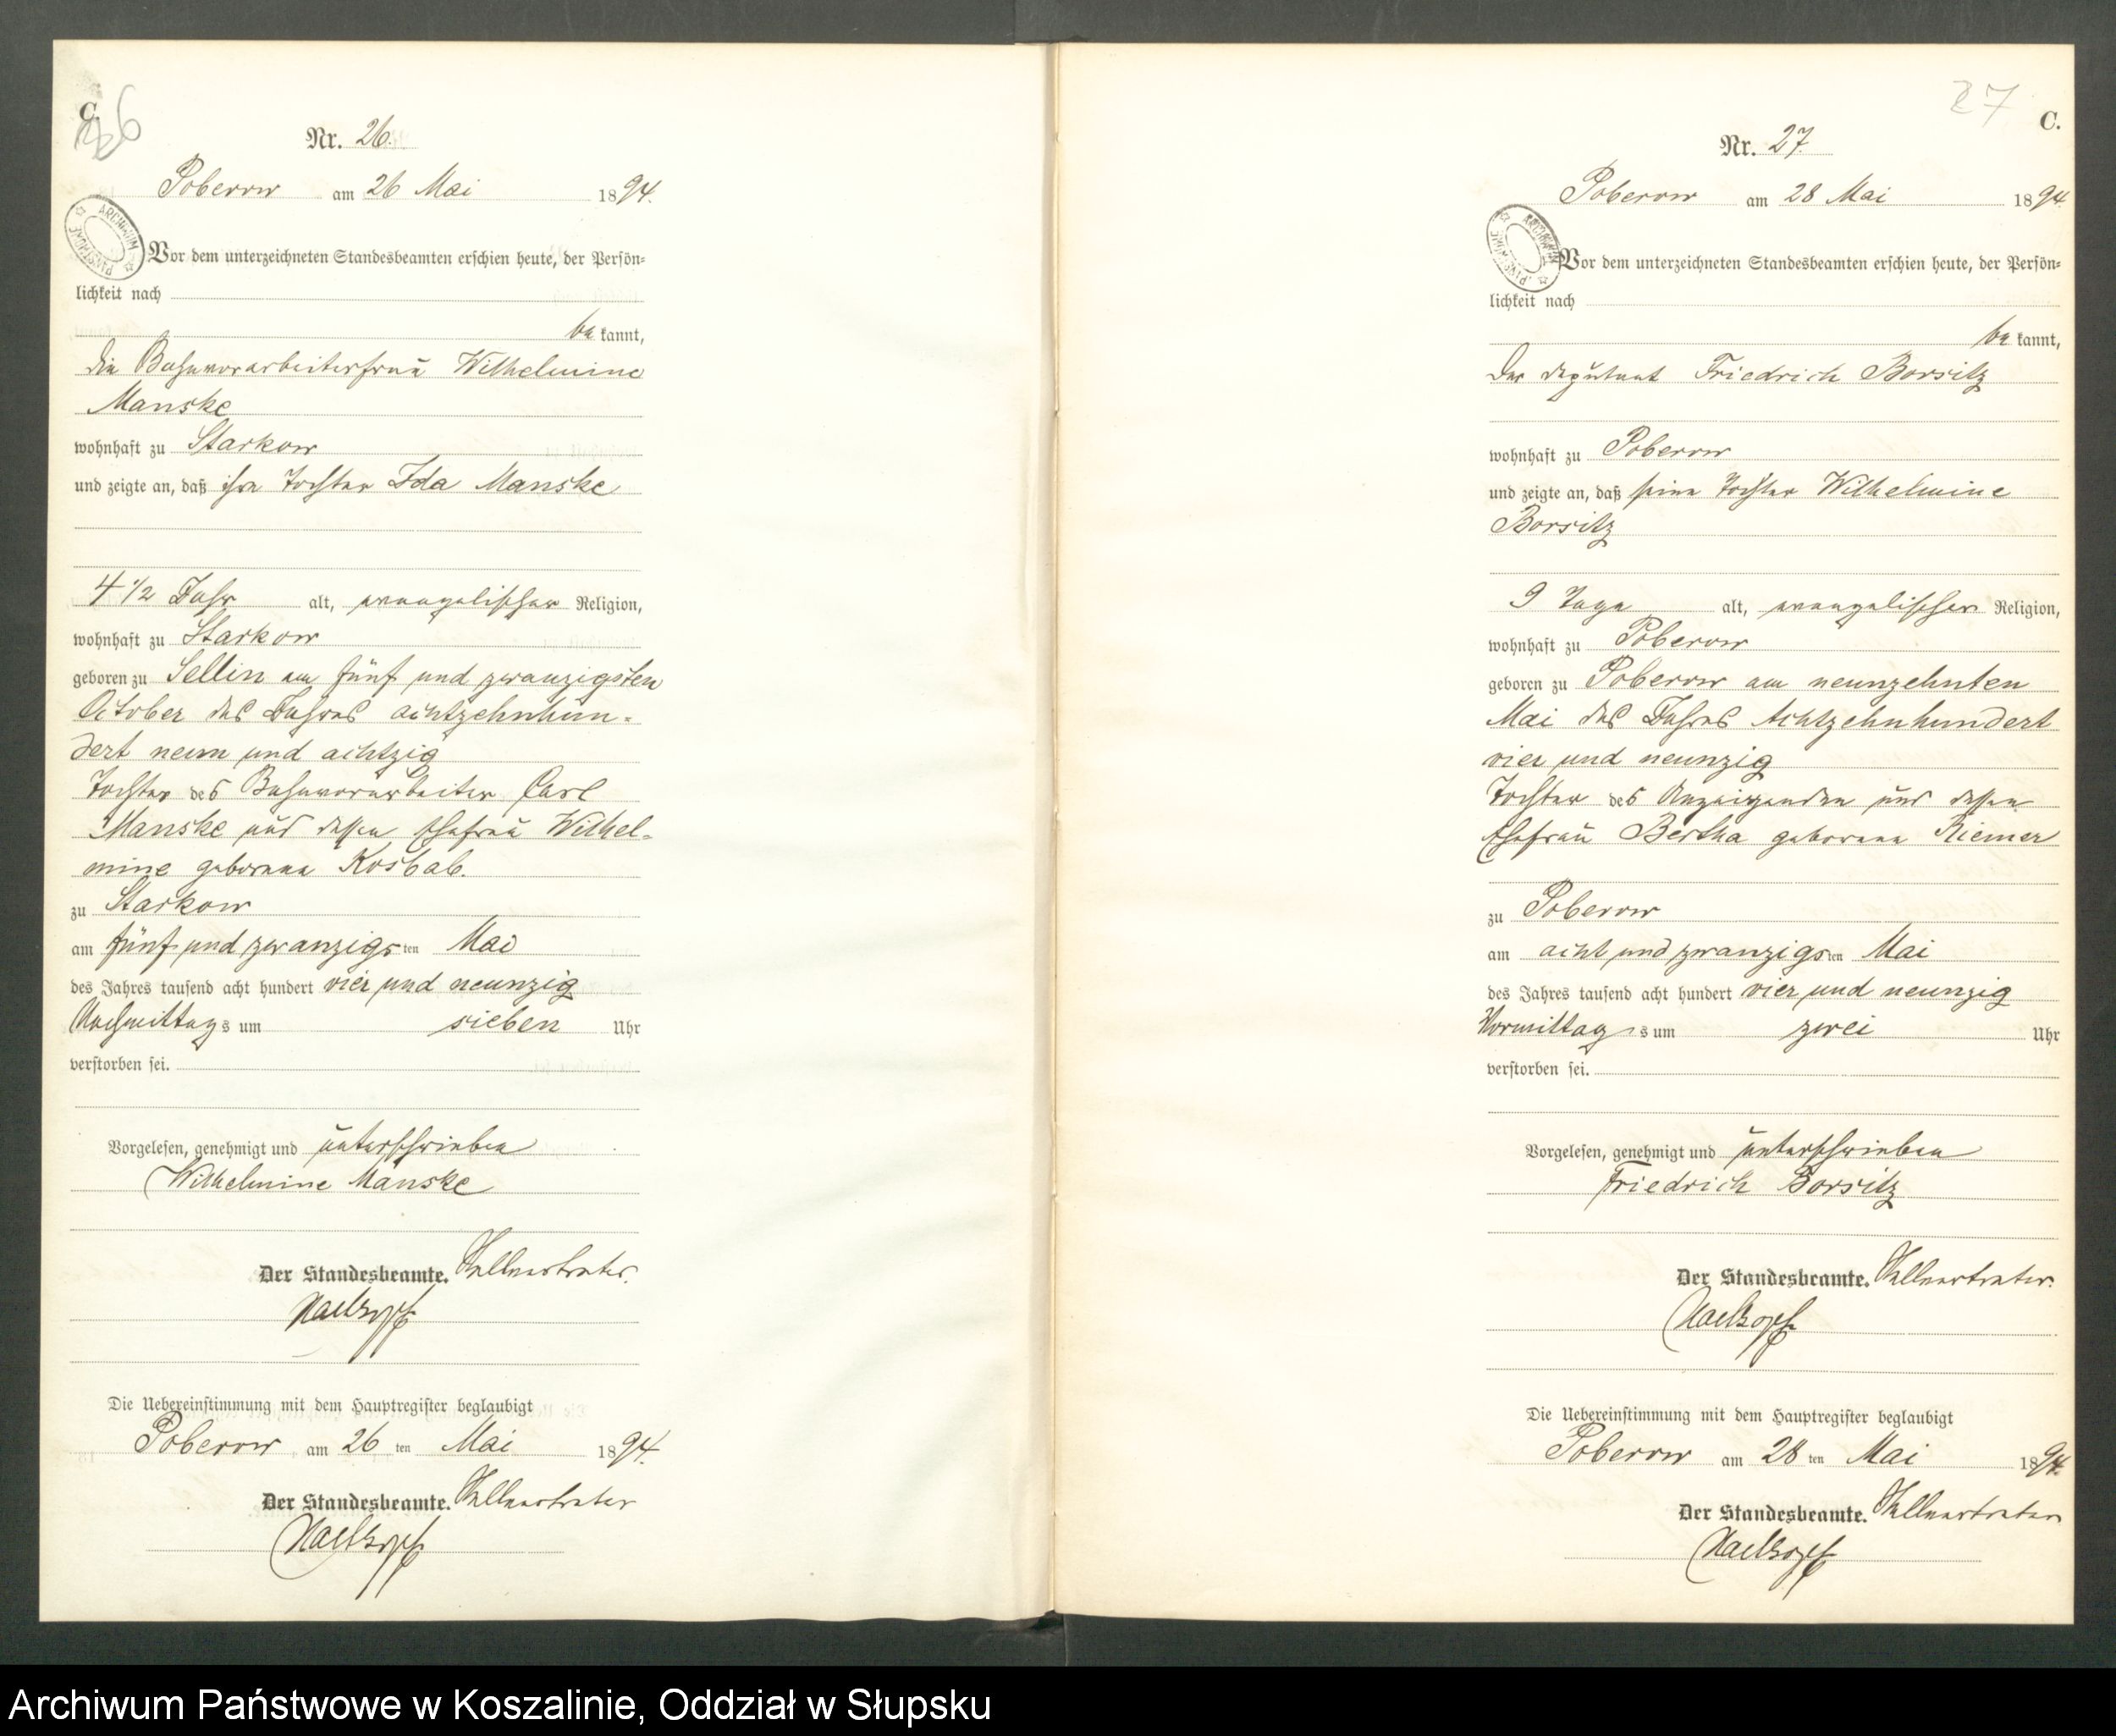 C.
26
Nr. 26.
Poberow am 26 Mai 1894.
ARCHIWUM PAŃSTWOWE
Vor dem unterzeichneten Standesbeamten erschien heute, der Persön=
lichkeit nach
be kannt,
die Bahnvorarbeiterfrau Wilhelmine
Manske
wohnhaft zu Starkow
und zeigte an, daß ihre Tochter Ida Manske
4 1/2 Jahr alt, evangelischer Religion,
wohnhaft zu Starkow
geboren zu Sellin am fünf und zwanzigsten
October des Jahres achtzehnhun=
dert neun und achtzig
Tochter des Bahnvorarbeiter Carl
Manske und dessen Ehefrau Wilhel=
mine geborene Kosbab.
zu Starkow
am fünf und zwanzigsten Mai
des Jahres tausend acht hundert vier und neunzig
Nachmittags um sieben Uhr
verstorben sei.
Vorgelesen, genehmigt und unterschrieben
Wilhelmine Manske
Der Standesbeamte. Stellvertreter.
Die Uebereinstimmung mit dem Hauptregister beglaubigt
Poberow am 26 ten Mai 1894.
Der Standesbeamte. Stellvertreter
27
C.
Nr. 27.
Poberow am 28 Mai 1894
ARCHIWUM PAŃSTWOWE
Vor dem unterzeichneten Standesbeamten erschien heute, der Persön=
lichkeit nach
be kannt,
Der Deputant Friedrich Borsitz
wohnhaft zu Poberow
und zeigte an, daß seine Tochter Wilhelmine
Borsitz
9 Tage alt, evangelischer Religion,
wohnhaft zu Poberow
geboren zu Poberow am neunzehnten
Mai des Jahres Achtzehnhundert
vier und neunzig
Tochter des Anzeigenden und dessen
Ehefrau Bertha geborene Riemer
zu Poberow
am acht und zwanzigsten Mai
des Jahres tausend acht hundert vier und neunzig
Vormittags um zwei Uhr
verstorben sei.
Vorgelesen, genehmigt und unterschrieben
Friedrich Borsitz
Der Standesbeamte. Stellvertreter.
Die Uebereinstimmung mit dem Hauptregister beglaubigt
Poberow am 28 ten Mai 1894.
Der Standesbeamte. Stellvertreter
Archiwum Państwowe w Koszalinie, Oddział w Słupsku